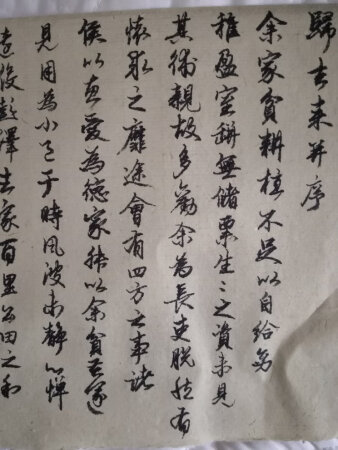 歸去来并序
余家貧耕植不足以自給幼
稚盈室缾無儲粟生〻之資未見
其術親故多勸余為長吏脱然有
懷求之靡途會有四方之事諸
侯以惠愛為德家叔以余貧苦遂
見用為小邑于時風波未靜心憚
遠役彭澤去家百里公田之利